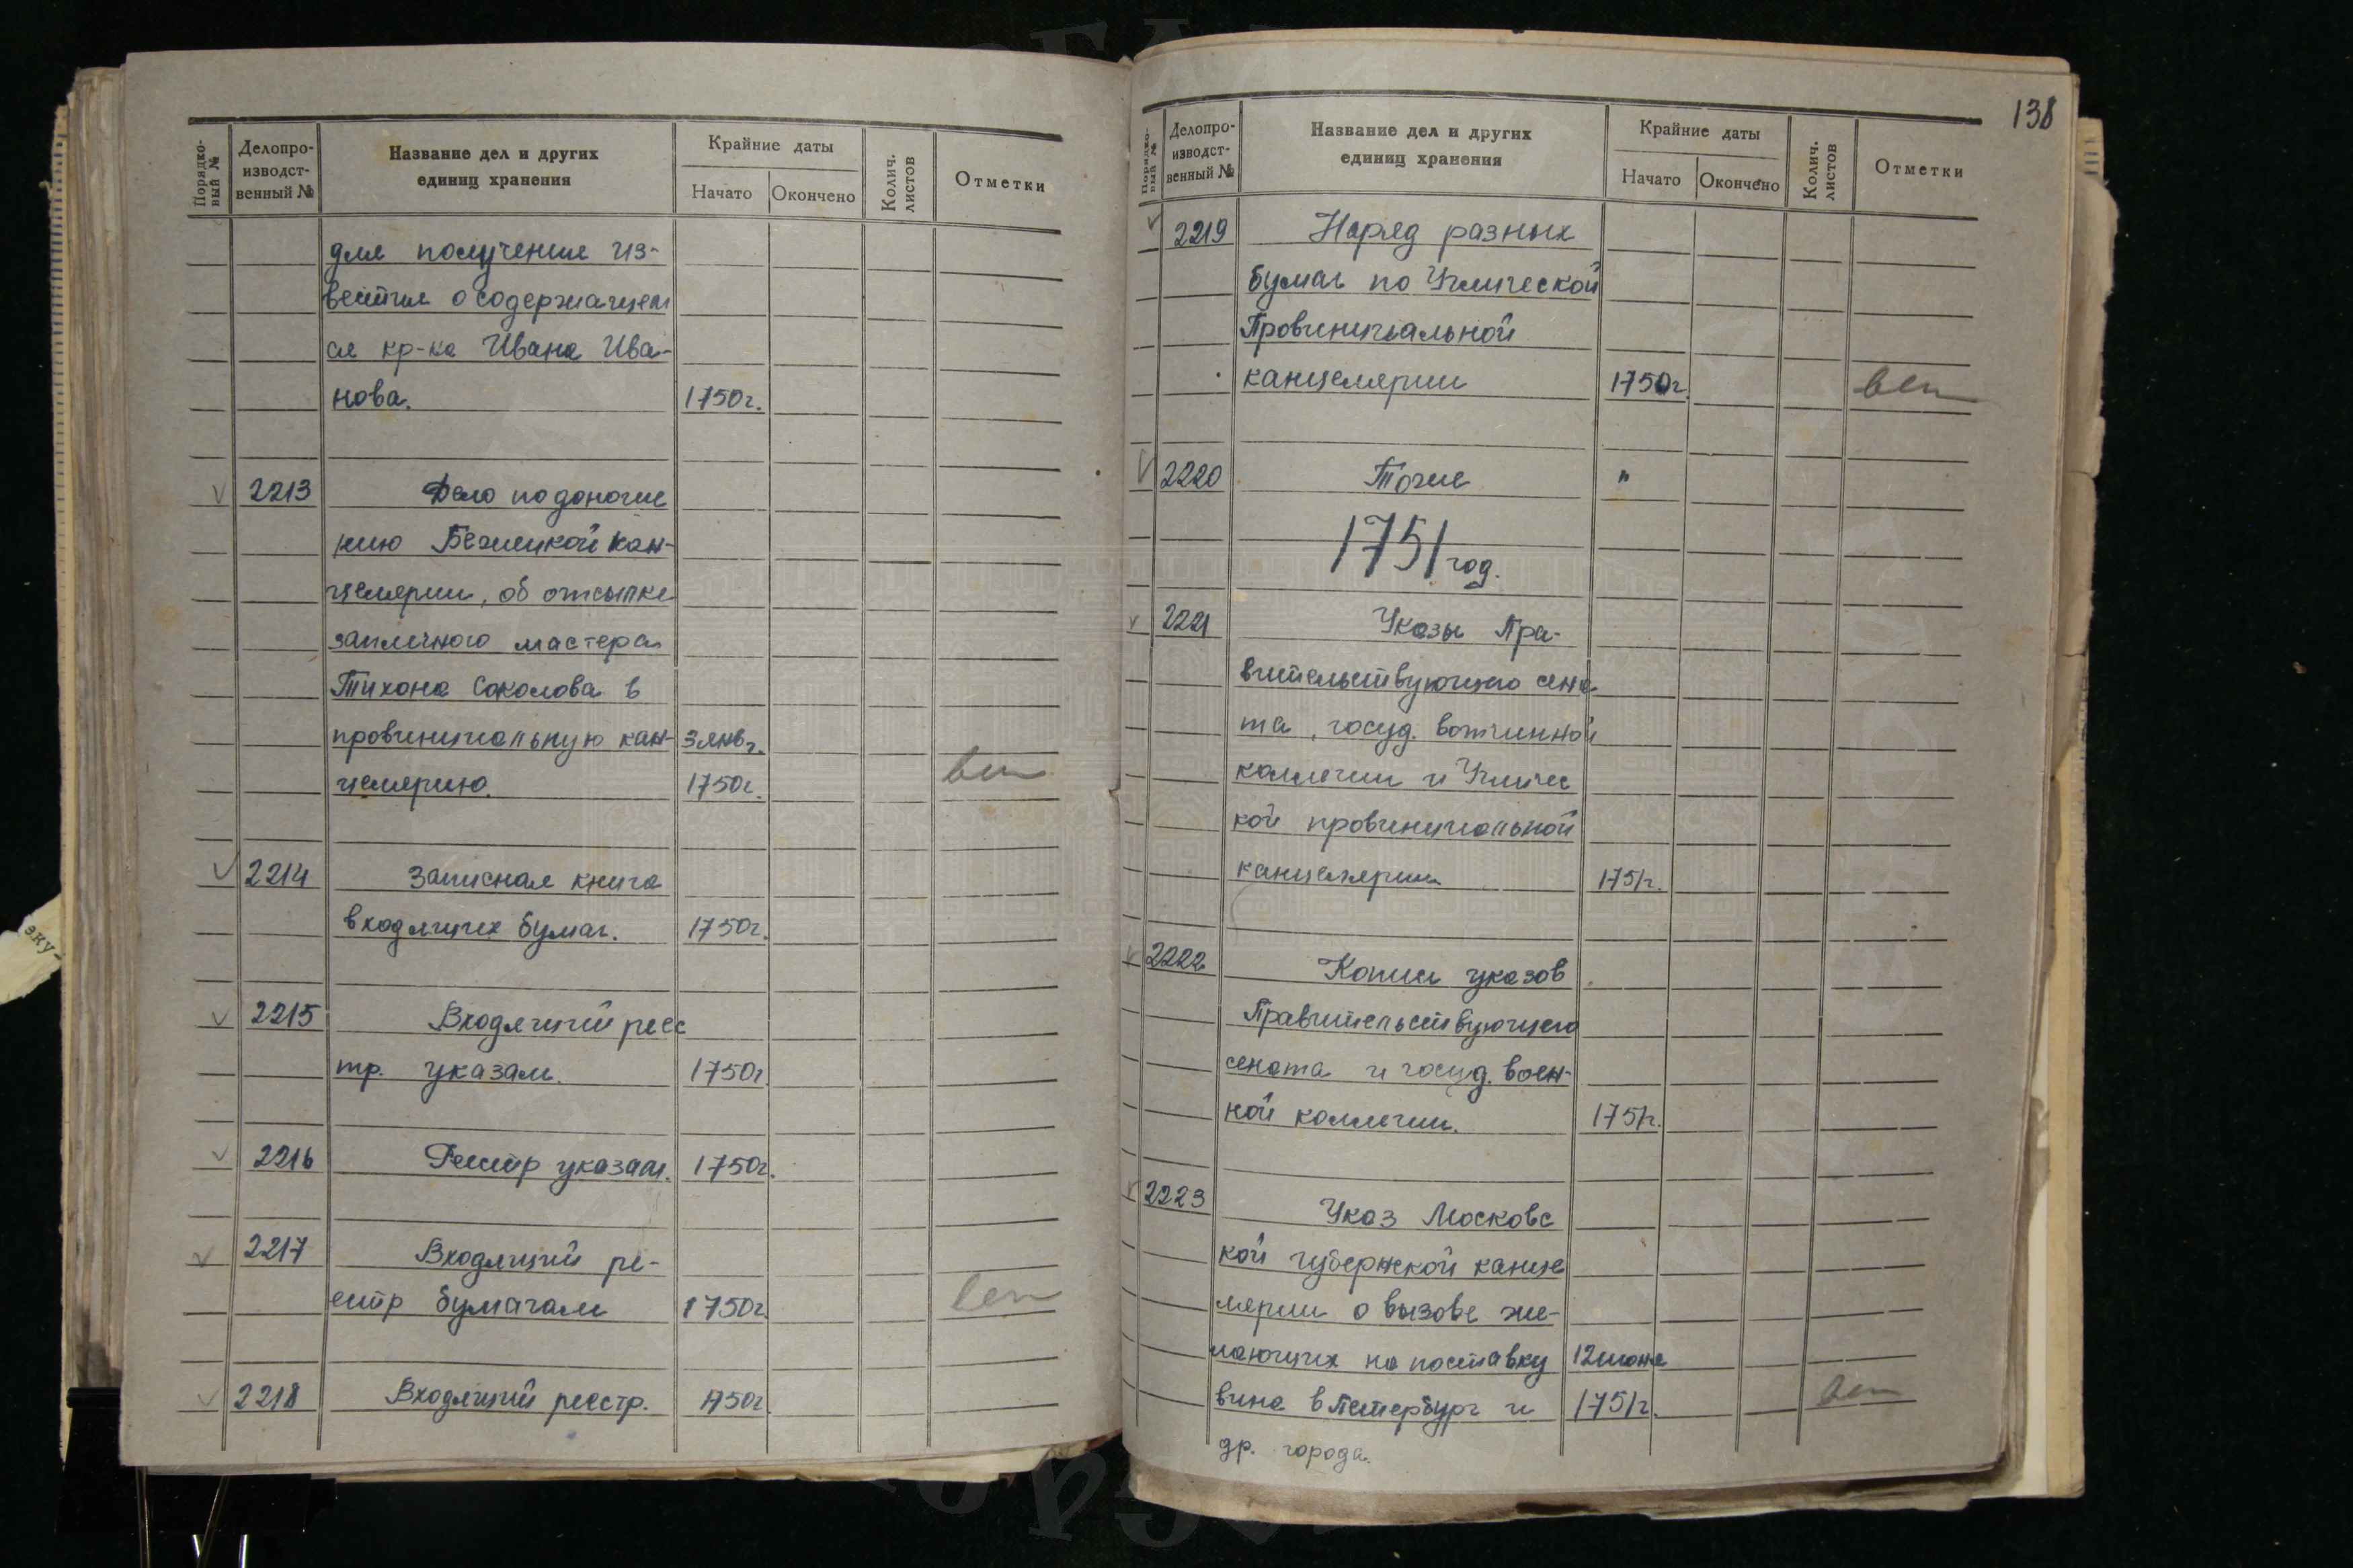 Порядко-
вый №
Делопро-
изводст-
венный №
Название дел и других
единиц хранения
Крайние даты
Начато
Окончено
Колич.
листов
Отметки
для получения из-
вестия о содержащем
ся кр-не Иване Ива-
нова. 1750г.
√ 2213 Дело по доноше
нию Бежецкой кан-
целярии, об отсылке
заплечного мастера
Тихона Соколова в
провинциальную кан- 3 янв.
целярию. 1750г. вет
√ 2214 Записная книга
входящих бумаг. 1750г.
√ 2215 Входящий реес
тр. указам. 1750г.
√ 2216 Реестр указам. 1750г.
√ 2217 Входящий ре-
естр бумагам 1750г. вет
√ 2218 Входящий реестр. 1750г.
эку-
138
Порядко-
вый №
Делопро-
изводст-
венный №
Название дел и других
единиц хранения
Крайние даты
Начато
Окончено
Колич.
листов
Отметки
√ 2219 Наряд разных
бумаг по Угличской
Провинциальной
канцелярии 1750г. вет
√ 2220 Тоже "
1751 год.
√ 2221 Указы Пра-
вительствующего сена
та, госуд. вотчинной
коллегии и Угличс
кой провинциальной
канцелярии 1751г.
√ 2222 Копии указов
Правительствующего
сената и госуд. воен-
ной коллегии. 1751г.
√ 2223 Указ Московс
кой губернской канце
лярии о вызове же-
лающих на поставку 12 июня
вина в Петербург и 1751г. вет
др. города.